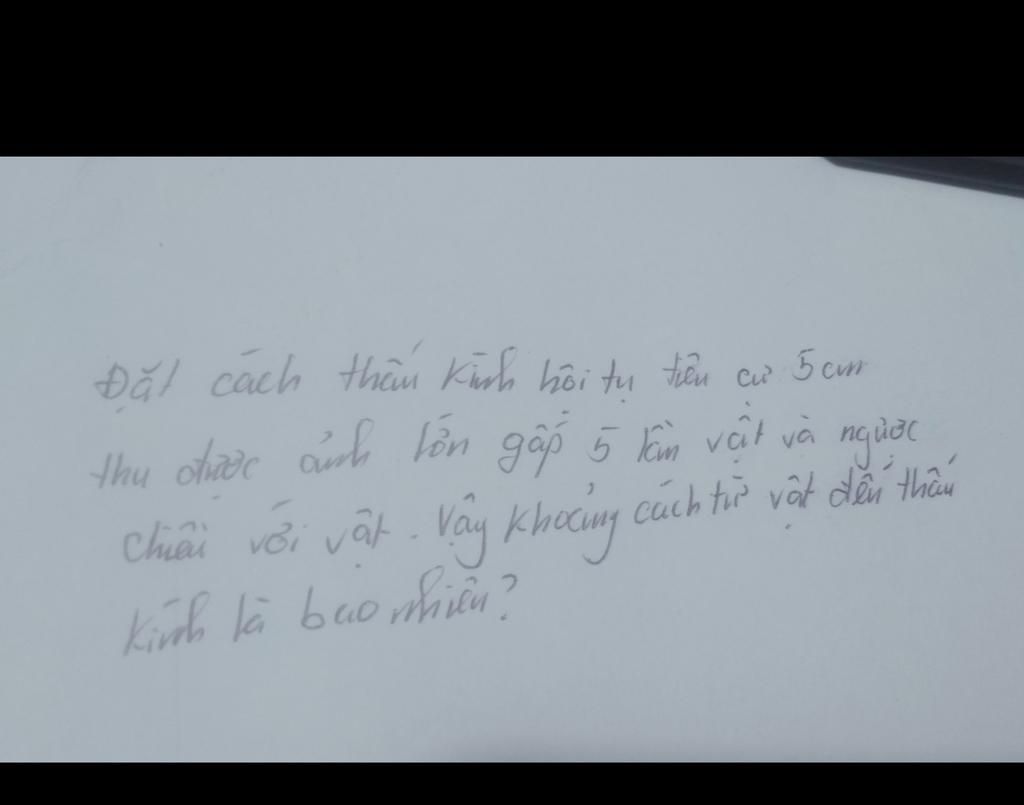 Đặt cách thấu kính hội tụ tiêu cự 5 cm
thu được ảnh lớn gấp 5 lần vật và ngược
chiều với vật. Vậy khoảng cách từ vật đến thấu
kính là bao nhiêu?